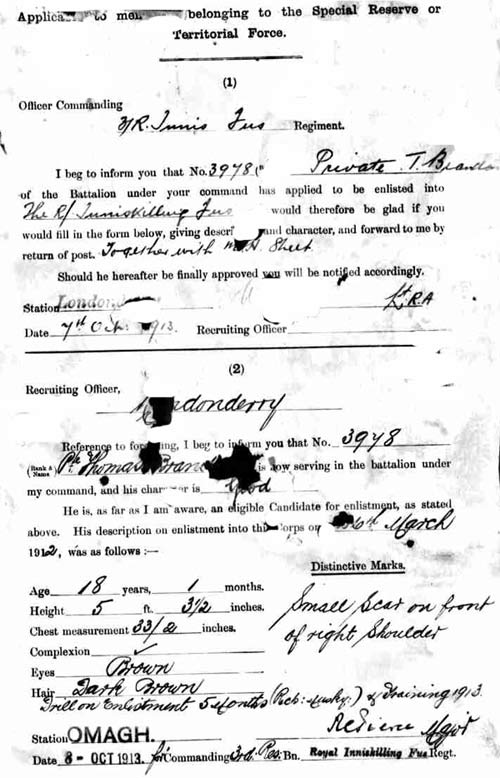 to men belonging to the Special Reserve or
Territorial Force.
(1)
Officer Commanding
3/R. Innis Fus Regiment.
I beg to inform you that No. 3978 Private T.
of the Battalion under your command has applied to be enlisted into
The R/ Inniskilling Fus would therefore be glad if you
would fill in the form below, giving and character, and forward to me by
return of post. Together with Sheet
Should he hereafter be finally approved you will be notified accordingly.
Station
Lt RA
Date 7th Oct. 1913. Recruiting Officer
(2)
Recruiting Officer,
Reference to I beg to inform you that No. 3978
(Rank & Name) Pte Thomas is now serving in the battalion under
my command, and his is Good
He is, as far as I am aware, an eligible Candidate for enlistment, as stated
above. His description on enlistment into this on March
1912, was as follows :—
Distinctive Marks.
Age 18 years, 1 months.
Height 5 ft. 3 1/2 inches.
Small Scar on front
Chest measurement 33 1/2 inches.
of right Shoulder
Complexion ✓
Eyes Brown
Hair Dark Brown
Drill on Enlistment 5 Months & Training 1913.
Station OMAGH.
Date 8- OCT 1913. for Commanding 3rd Res: Bn. Royal Inniskilling Fus Regt.